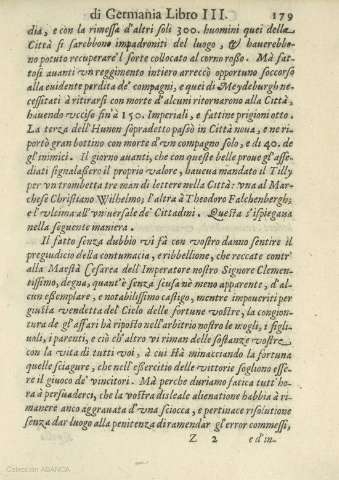 di Germania Libro III. 179
dia, e con la rimessa d'altri soli 300. huomini quei della
Città si sarebbono impadroniti del luogo, & hauerebbe-
no potuto recuperare'l forte collocato al corno roßo. Mà fat-
tosi auanti un reggimento intiero arrecò opportuno soccorso
alla euidente perdita de' compagni, e quei di Meydeburgh ne-
cessitati à ritirarsi con morte d'alcuni ritornarono alla Città,
hauendo vcciso sin à 150. Imperiali, e fattine prigioni otto.
La terza dell'Hunen sopradetto passò in Città noua, e ne ri-
portò gran bottino con morte d'vn compagno solo, e di 40. de
gl'inimici. Il giorno auanti, che con queste belle proue gl'asse-
diati signalassero il proprio valore, haueua mandato il Tilly
per vn trombetta tre man di lettere nella Città: vna al Mar-
chese Christiano Wilhelmo; l'altra à Theodoro Falchenbergh;
e l'vltima all'vniuersale de' Cittadini. Questa s'ispiegana
nella seguente maniera.
Il fatto senza dubbio vi fà con vostro danno sentire il
pregiudicio della contumacia, e ribellione, che reccate contr'
alla Maestà Cesarea dell'Imperatore nostro Signore Clemen-
tissimo, degna, quant'è senza scusa nè meno apparente, d'al-
cun essemplare, e notabilissimo castigo, mentre impoueriti per
giusta vendetta del Cielo delle fortune vostre, la congion-
tura de gl'affari hà riposto nell'arbitrio nostro le mogli, i figli-
uoli, i parenti, e ciò ch'altro vi riman delle sostanze vostre
con la vita di tutti voi, à cui Hà minacciando la fortuna
quelle sciagure, che nell'essercitio delle vittorie sogliono esse-
re il giuoco de' vincitori. Mà perche duriamo fatica tutt'ho-
ra à persuaderci, che la vostra disleale alienatione habbia à ri-
manere anco aggrauata d'vna sciocca, e pertinace risolutione
senza dar luogo alla penitenza di ramendar gl'error commessi,
Z 2 ed in-
Colección ABANCA